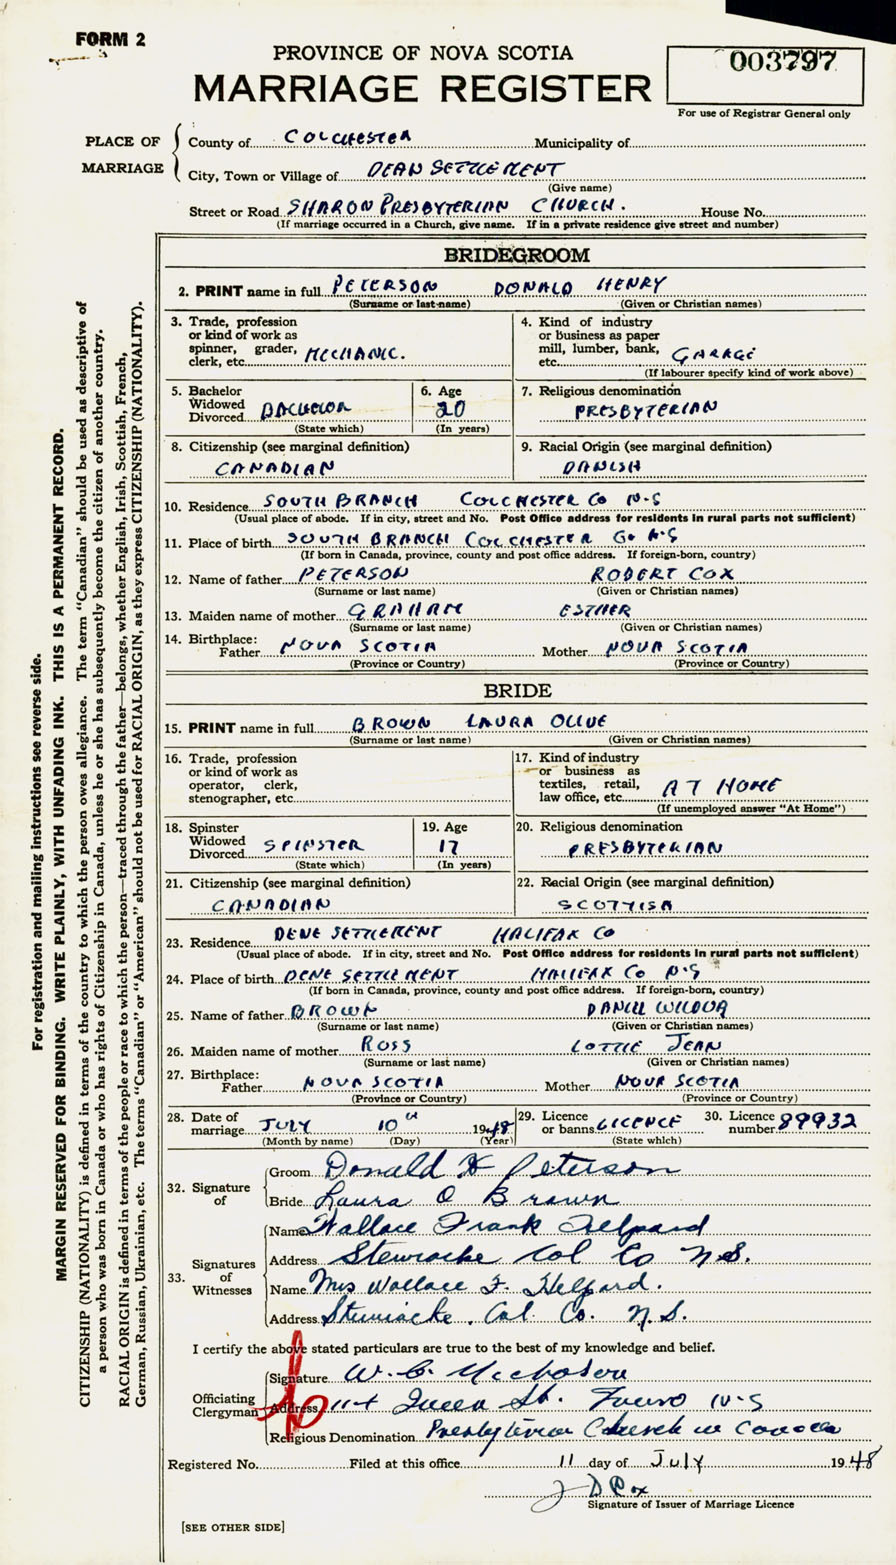 FORM 2
PROVINCE OF NOVA SCOTIA
MARRIAGE REGISTER
003797
For use of Registrar General only
PLACE OF MARRIAGE
County of COLCHESTER Municipality of
City, Town or Village of DEAN SETTLEMENT
(Give name)
Street or Road SHARON PRESBYTERIAN CHURCH. House No.
(If marriage occurred in a Church, give name. If in a private residence give street and number)
BRIDEGROOM
2. PRINT name in full PETERSON DONALD HENRY
(Surname or last name) (Given or Christian names)
3. Trade, profession 4. Kind of industry
or kind of work as or business as paper
spinner, grader, mill, lumber, bank,
clerk, etc. MECHANIC. etc. GARAGE
(If labourer specify kind of work above)
5. Bachelor 6. Age 7. Religious denomination
Widowed
Divorced BACHELOR 20 PRESBYTERIAN
(State which) (In years)
8. Citizenship (see marginal definition) 9. Racial Origin (see marginal definition)
CANADIAN DANISH
10. Residence SOUTH BRANCH COLCHESTER CO N-S
(Usual place of abode. If in city, street and No. Post Office address for residents in rural parts not sufficient)
11. Place of birth SOUTH BRANCH COLCHESTER Co N-S
(If born in Canada, province, county and post office address. If foreign-born, country)
12. Name of father PETERSON ROBERT COX
(Surname or last name) (Given or Christian names)
13. Maiden name of mother GRAHAM ESTHER
(Surname or last name) (Given or Christian names)
14. Birthplace:
Father NOVA SCOTIA Mother NOVA SCOTIA
(Province or Country) (Province or Country)
BRIDE
15. PRINT name in full BROWN LAURA OLIVE
(Surname or last name) (Given or Christian names)
16. Trade, profession 17. Kind of industry
or kind of work as or business as
operator, clerk, textiles, retail,
stenographer, etc. law office, etc. AT HOME
(If unemployed answer "At Home")
18. Spinster 19. Age 20. Religious denomination
Widowed
Divorced SPINSTER 17 PRESBYTERIAN
(State which) (In years)
21. Citizenship (see marginal definition) 22. Racial Origin (see marginal definition)
CANADIAN SCOTTISH
23. Residence DENE SETTLEMENT HALIFAX Co
(Usual place of abode. If in city, street and No. Post Office address for residents in rural parts not sufficient)
24. Place of birth DENE SETTLEMENT HALIFAX Co N-S
(If born in Canada, province, county and post office address. If foreign-born, country)
25. Name of father BROWN DANIEL WILBUR
(Surname or last name) (Given or Christian names)
26. Maiden name of mother ROSS LOTTIE JEAN
(Surname or last name) (Given or Christian names)
27. Birthplace:
Father NOVA SCOTIA Mother NOVA SCOTIA
(Province or Country) (Province or Country)
28. Date of marriage JULY 10th 1948 29. Licence or banns LICENCE 30. Licence number 89932
(Month by name) (Day) (Year) (State which)
32. Signature of
Groom Donald H Peterson
Bride Laura O Brown
33. Signatures of Witnesses
Name Wallace Frank
Address Stewiacke Col Co N.S.
Name Mrs Wallace F.
Address Stewiacke. Col. Co. N.S.
I certify the above stated particulars are true to the best of my knowledge and belief.
Officiating Clergyman
Signature W. C. Nicholson
Address 114 Queen St. Truro N-S
Religious Denomination Presbyterian Church in Canada
Registered No. Filed at this office 11 day of July 1948
J D Cox
Signature of Issuer of Marriage Licence
[SEE OTHER SIDE]
For registration and mailing instructions see reverse side.
MARGIN RESERVED FOR BINDING. WRITE PLAINLY, WITH UNFADING INK. THIS IS A PERMANENT RECORD.
CITIZENSHIP (NATIONALITY) is defined in terms of the country to which the person owes allegiance. The term "Canadian" should be used as descriptive of
a person who was born in Canada or who has rights of Citizenship in Canada, unless he or she has subsequently become the citizen of another country.
RACIAL ORIGIN is defined in terms of the people or race to which the person—traced through the father—belongs, whether English, Irish, Scottish, French,
German, Russian, Ukrainian, etc. The terms "Canadian" or "American" should not be used for RACIAL ORIGIN, as they express CITIZENSHIP (NATIONALITY).